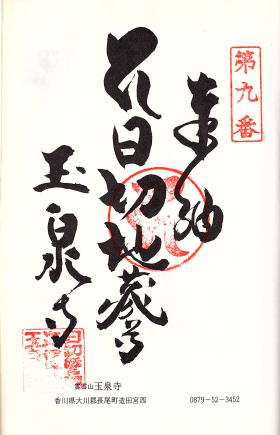 第九番
奉納
日切地蔵尊
玉泉寺
玉泉寺
香川県大川郡長尾町造田宮西
0879-52-3452